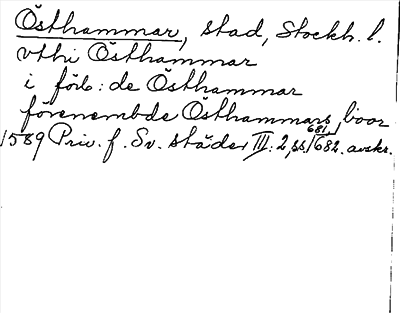 Östhammar, stad, Stockh. l.
vthi Östhammar
i förb: de Östhammar
förenembde Östhammars boor
1589 Priv. f. Sv. städer III: 2, ss. 681, 682. avskr.